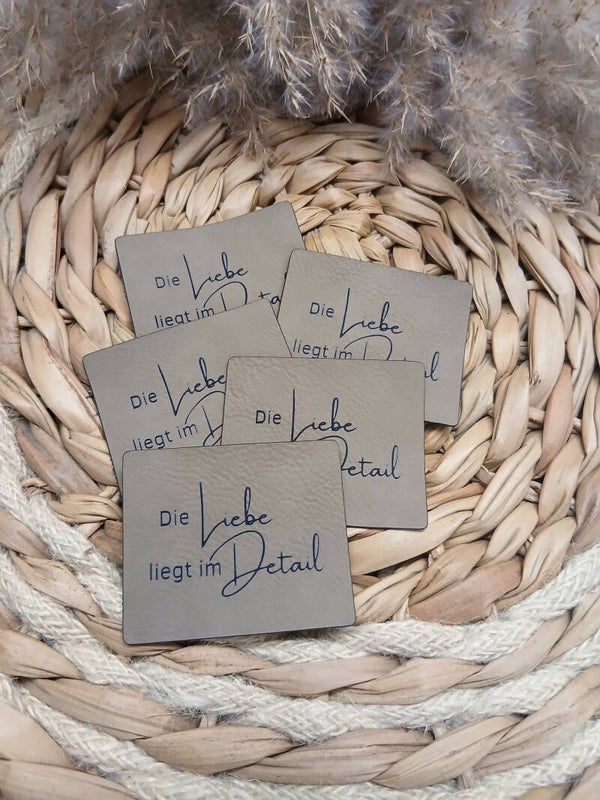 Die Liebe
liegt im
Die Liebe
liegt im
Die Liebe
liegt im
Die Liebe
Detail
Die Liebe
liegt im Detail